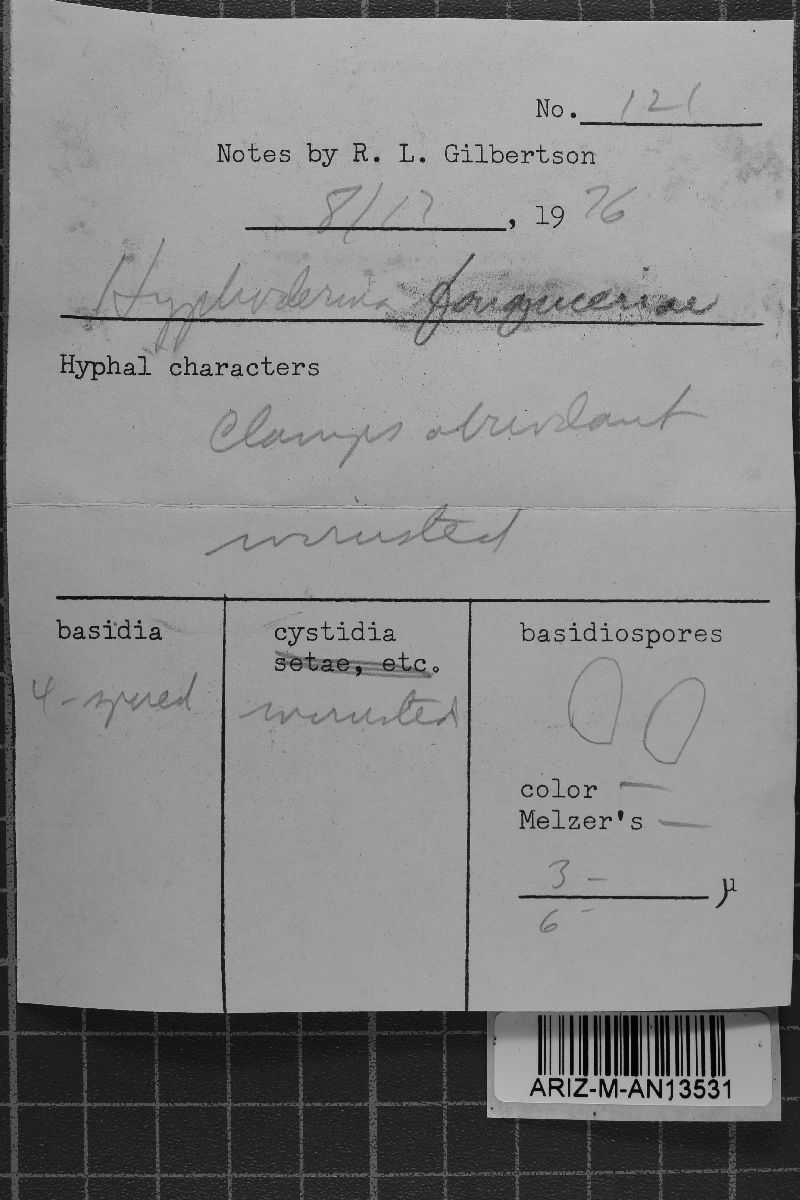 No. 121
Notes by R. L. Gilbertson
8/17, 1976
Hyphoderma fouquieriae
Hyphal characters
Clamps abundant
incrusted
basidia
4-spored
cystidia
setae, etc.
incrusted
basidiospores
color —
Melzer's —
3 – µ
6 –
ARIZ-M-AN13531